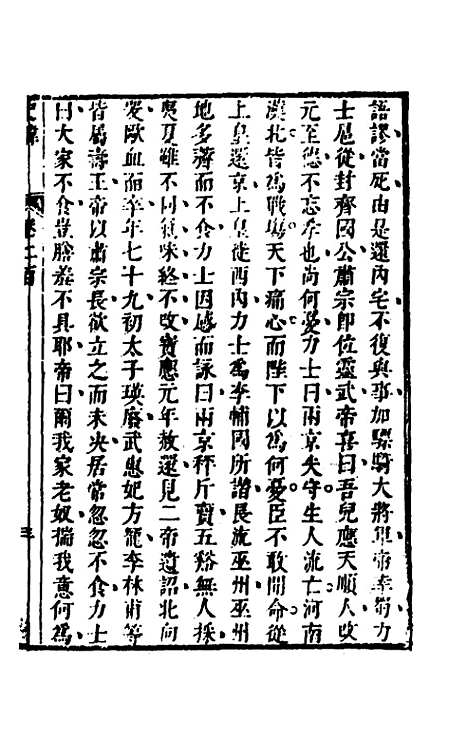 語謬當死由是還內宅不復與事加驃騎大將軍帝幸蜀力
士扈從封齊國公肅宗即位靈武帝喜曰吾兒應天順人改
元至德不忘孝也尚何憂力士曰兩京失守生人流亡河南
漢北皆為戰塲天下痛心而陛下以為何憂臣不敢聞命從
上皇還京上皇徙西內力士為李輔國所譖長流巫州巫州
地多薺而不食力士因感而詠曰兩京秤斤賣五谿無人採
夷夏雖不同氣味終不改寶應元年赦還見二帝遺詔北向
哭歐血而卒年七十九初太子瑛廢武惠妃方寵李林甫等
皆屬壽王帝以肅宗長欲立之而未决居常忽忽不食力士
曰大家不食豈膳羞不具耶帝曰爾我家老奴揣我意何為
卷二百